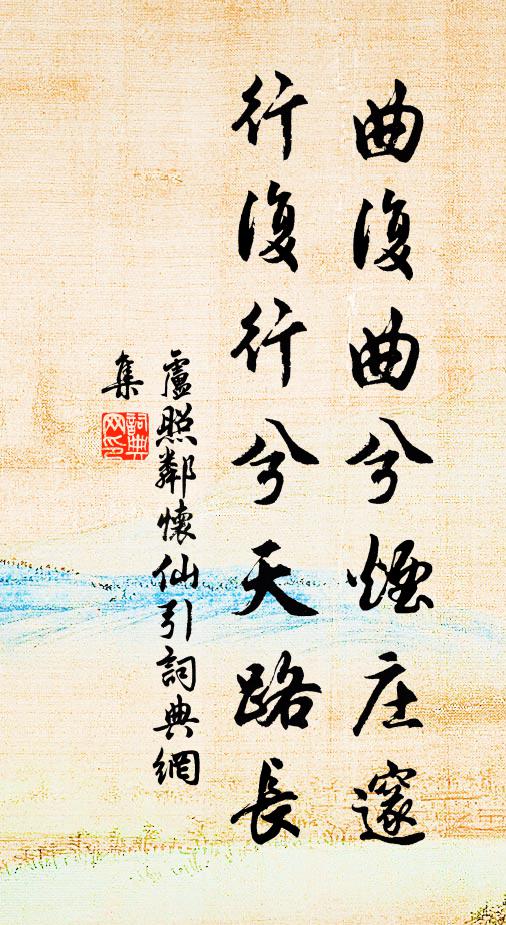 曲復曲兮煙庄邃
行復行兮天路長
盧照鄰懷仙引詞典網
集
詞典
网印